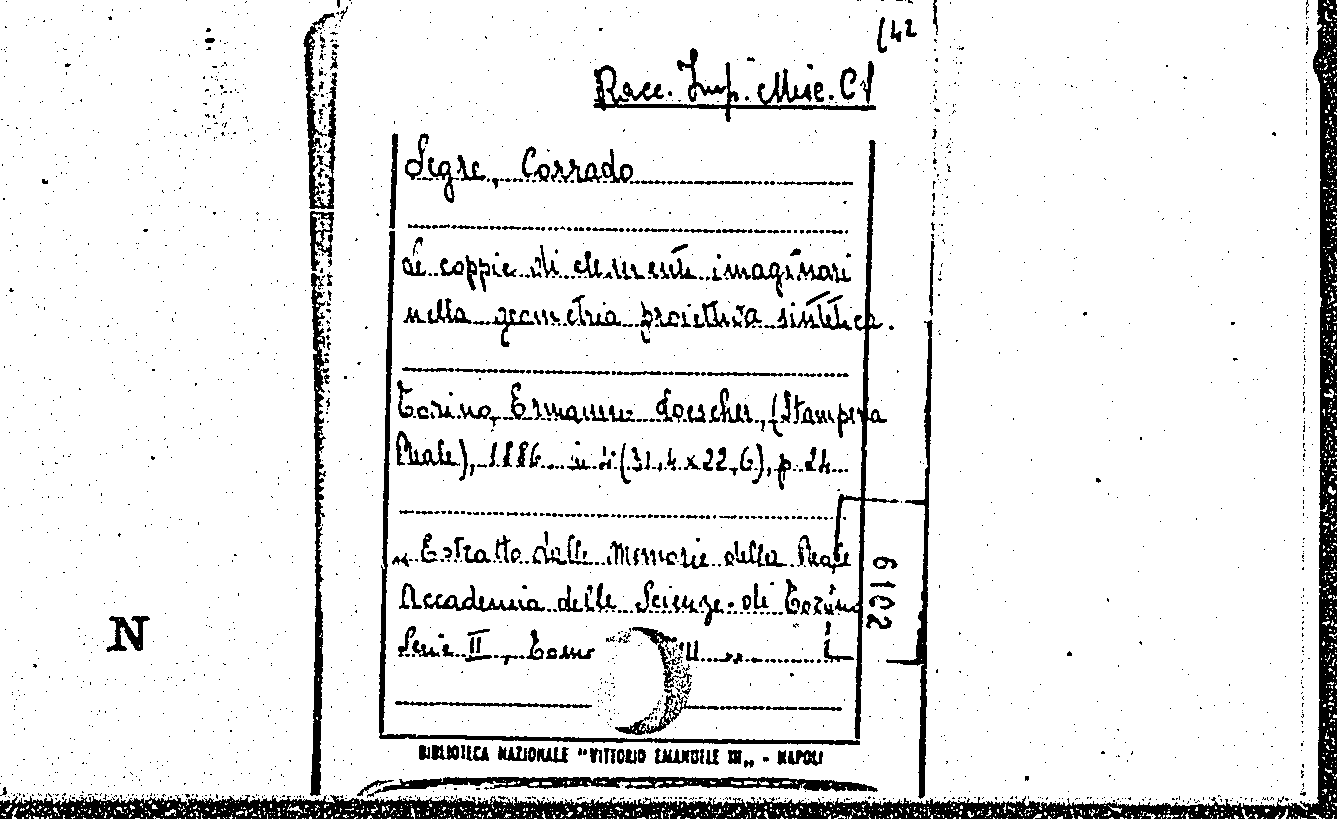 (42
Racc. Imp. Misc. C1
Segre, Corrado
Le coppie di elementi imaginari
nella geometria proiettiva sintetica.
Torino, Ermanno Loescher, (Stamperia
Reale), 1886. in 4° (31,4 x 22,6), p. 24
"Estratto dalle Memorie della Reale
Accademia delle Scienze di Torino
Serie II, Tomo
6102
N
BIBLIOTECA NAZIONALE "VITTORIO EMANUELE III„ - NAPOLI